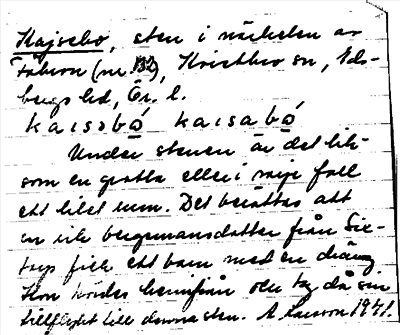 Kajsebo, sten i närheten av
Täbron (nr. 132), Kvistbro sn, Eds-
bergs hd, Ör. l.
kaisabó kaisabó
Under stenen är det lik-
som en grotta eller i varje fall
ett litet rum. Det berättas att
en rik bergsmansdotter från Sie-
trys fick ett barn med en dräng
Hon kördes hemifrån och tog då sin
tillflykt till denna sten. A. Larsson 1941.